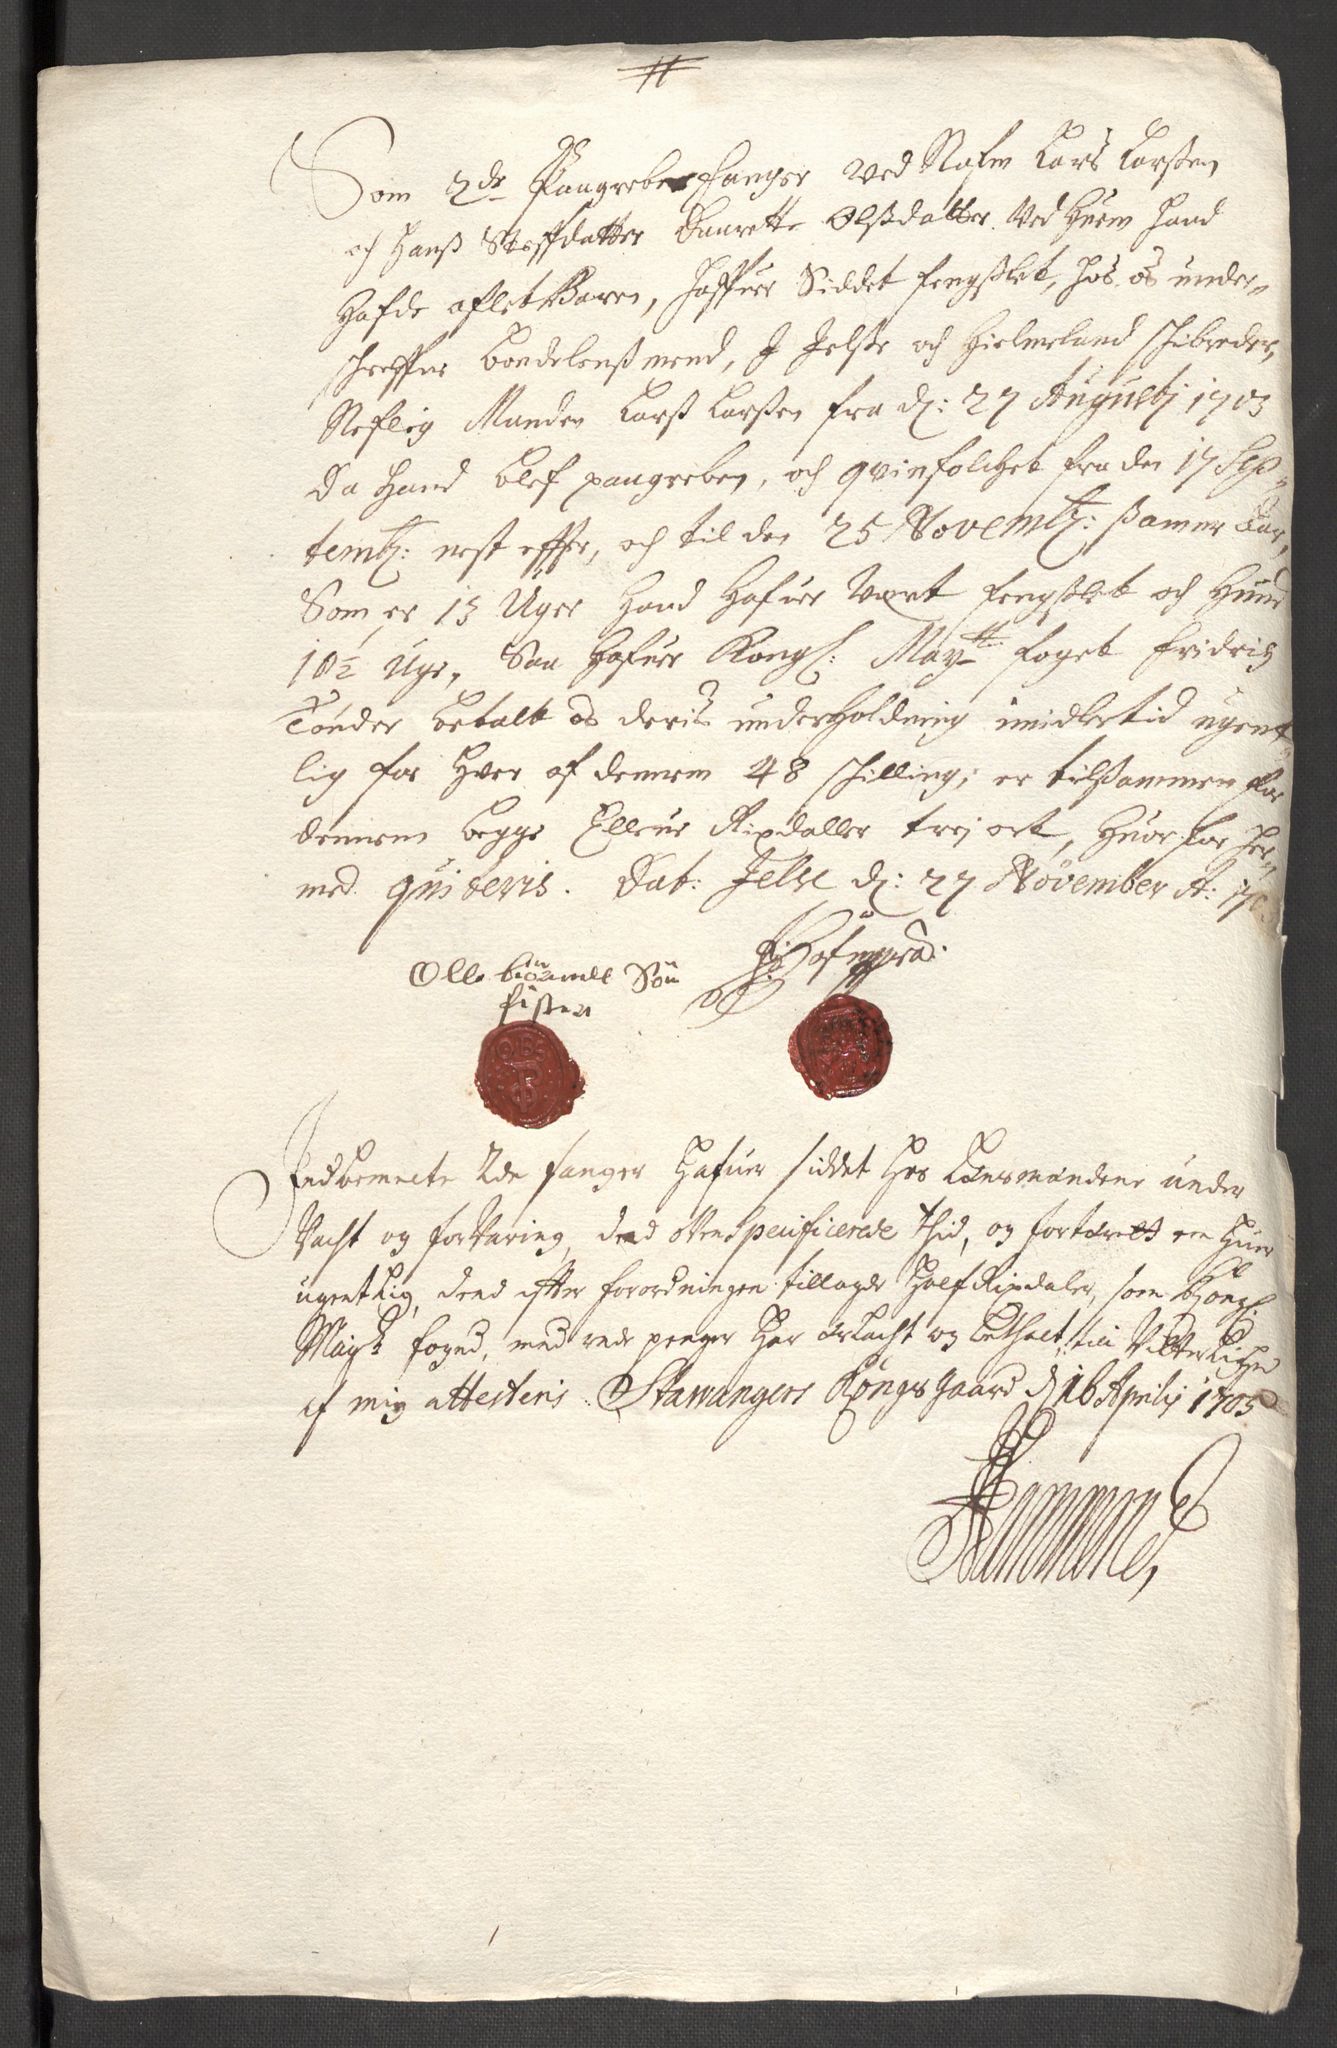 Som 2de Paagrebene fanger ved Nafn Lars Larßen
och Hanß Stiffdatter Daarette Olßdatter, Ved Huem Hand
Hafde aflet Barn, Haffuer Siddet fengßlet, hos os under-
schreffne bondelensmend, J Jelsse och Hielmeland schibreder,
Neflig Manden Larß Larßen fra d: 27 Augustj 1703
da Hand blef paagreben, och qvinfolchet fra den 17 Sep-
temb: nest effter, och til den 25 Novemb: ßamme Aar,
Som er 13 Uger Hand Hafuer Vært fengßlet och Hund
10½ Uge, Saa Hafuer Kongl: May.tt foget Fridrich
Tönder betalt os deris underholdning imidlertid ugent-
lig for Hver af dennem 48 schilling, er tilßammen for
dennem begge Elleve Rixdaller trej ort, Huor for Her-
med quiteris. Dat: Jelse d: 27 November A: 1703
Olle biörnell Sön
fister
OBS
Indbemelte 2de fanger Hafuer siddet Hos Lensmendene under
Vacht og forVaring, dend ovenSpecificerede Thid, og fortæret en Huer
ugentlig, dend efter forordningen tillagde Half Rixdaler, som Kongl:
May.ts foged, med rede penger Har erlacht og bethalt, till Vitterlighed
af mig attesteris. Stawangers Kongsgaard d 16 Aprilij 1705